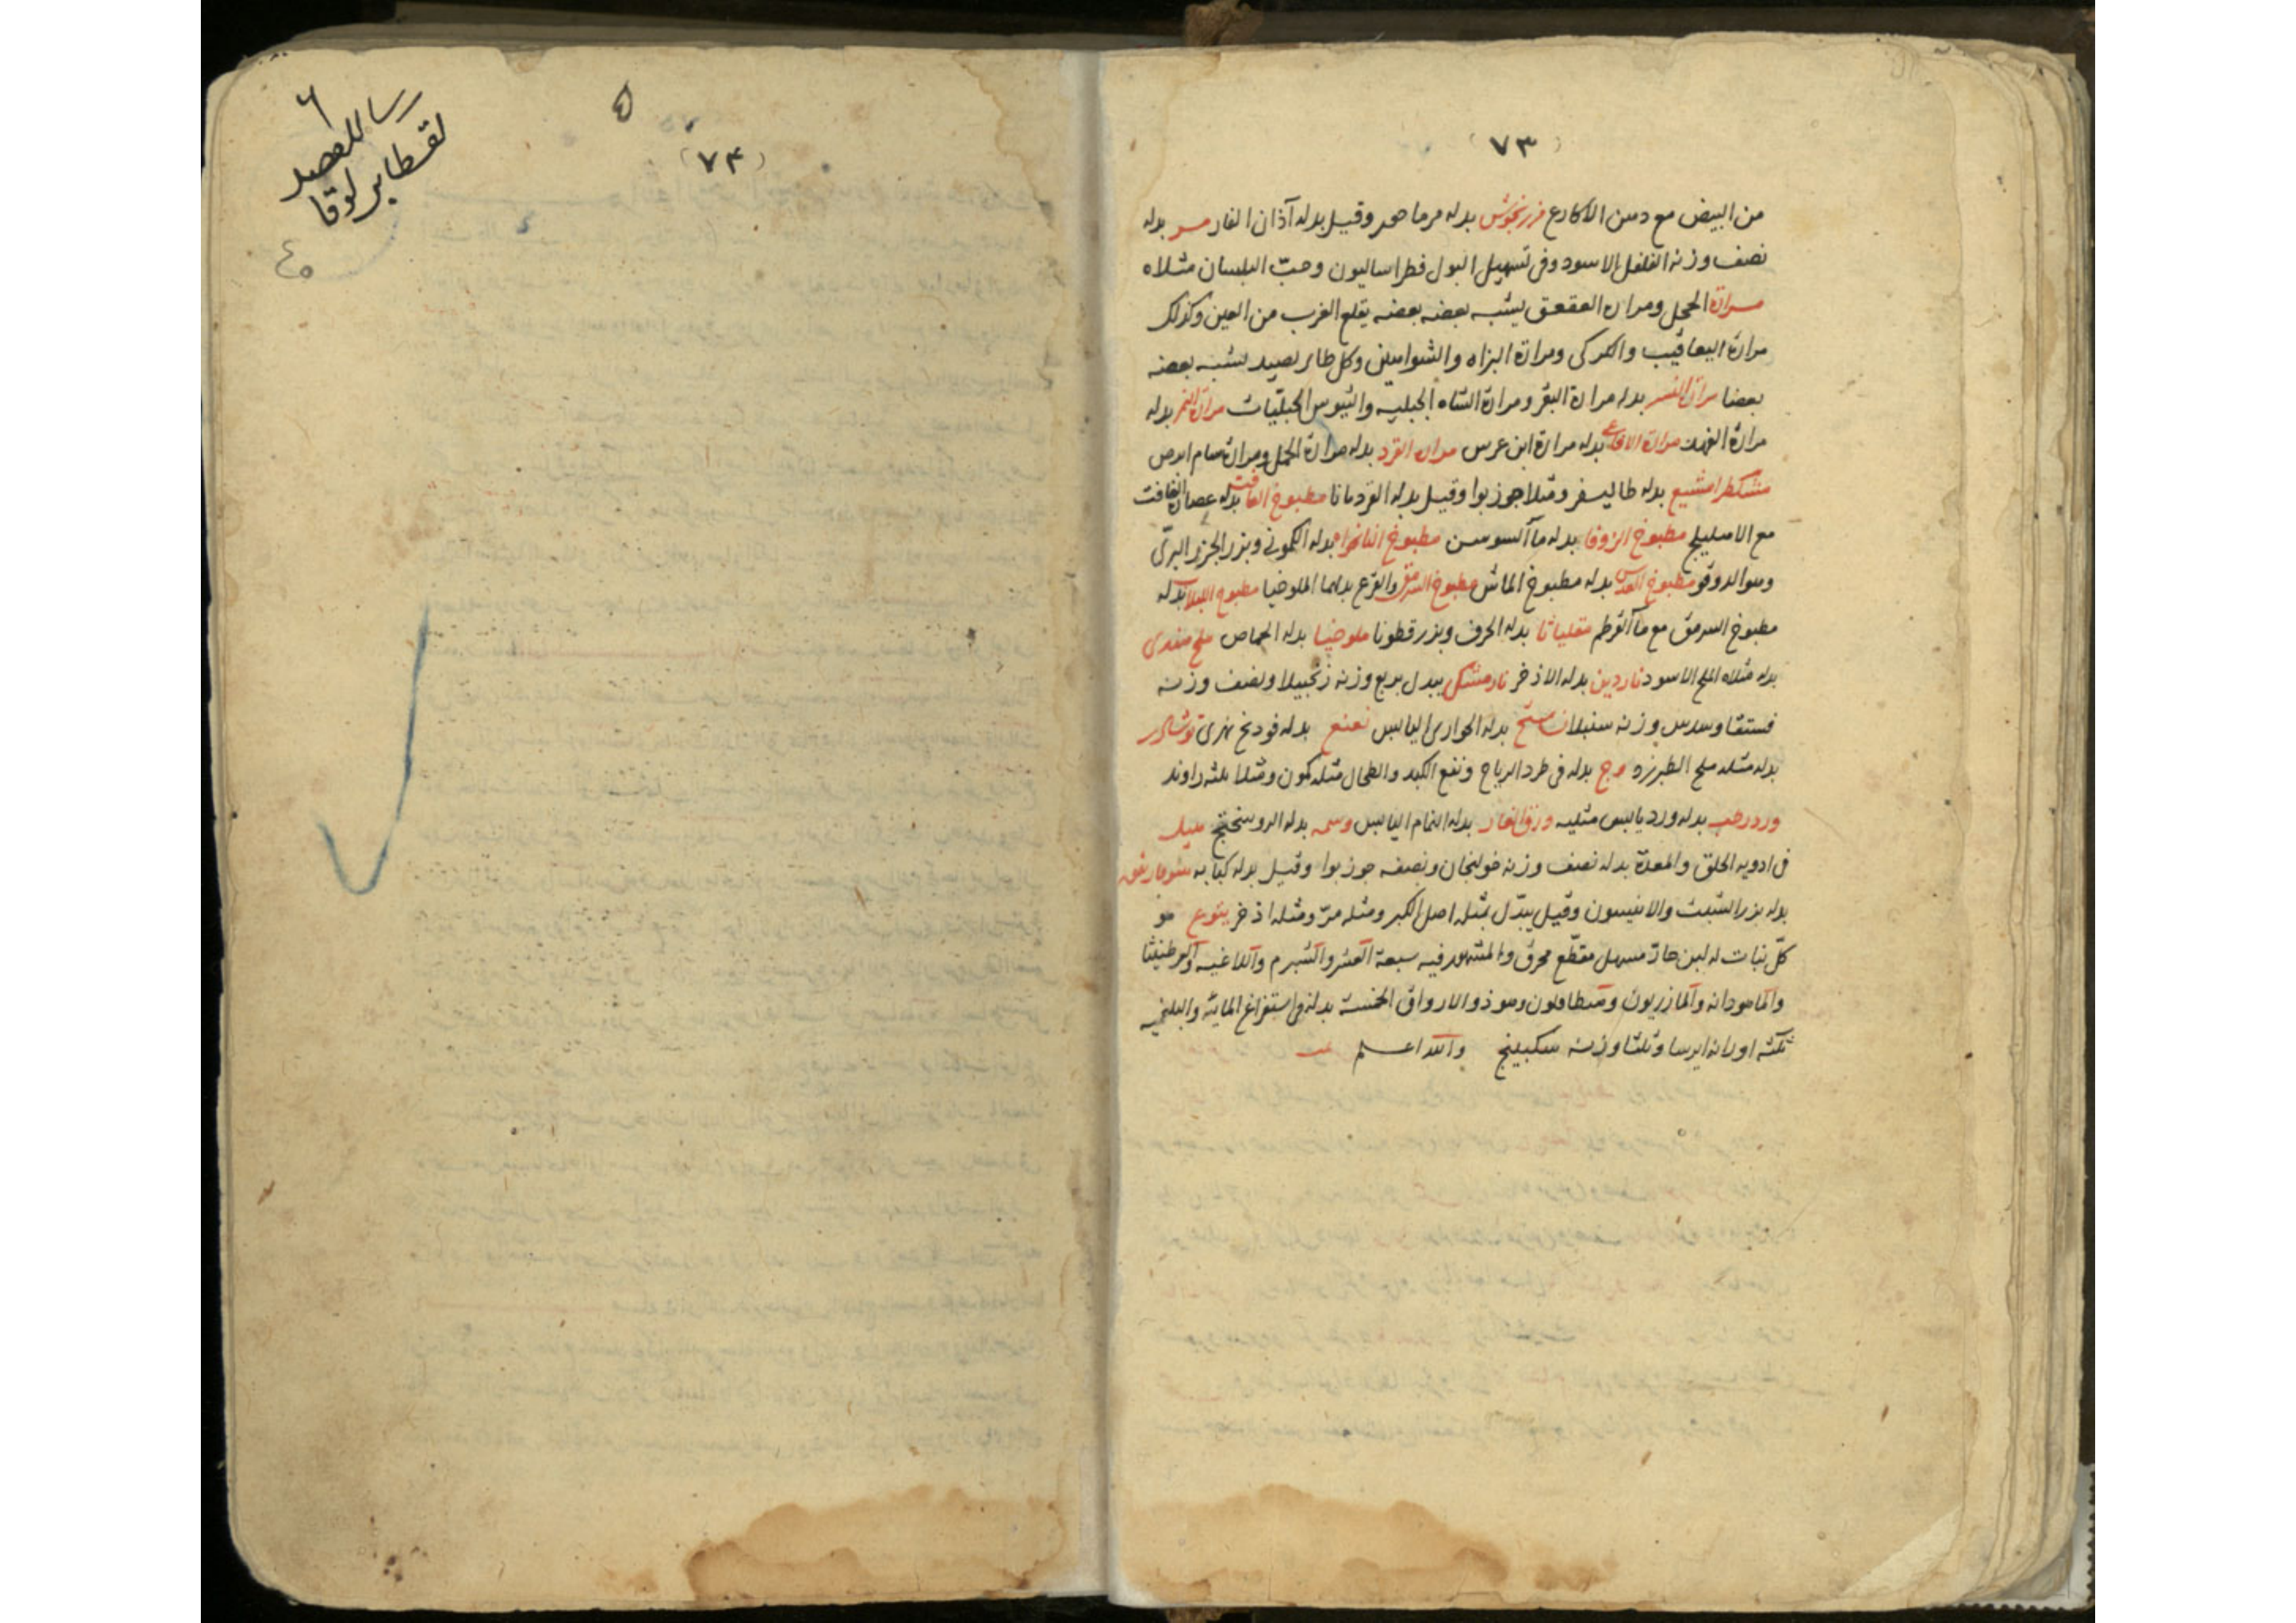 (٧٣)
من البيض مع دهن الاكارع مرزنجوش بدله مرماحور وقيل بدله آذان الفار مر بدله
نصف وزنه الفلفل الاسود وفى تسهيل البول فطراساليون وحبّ البلسان مثلاه
مرارة الحجل ومراره العقعق يشبه بعضه بعضه يقلع الغرب من العين وكذلك
مرارة اليعاقيب والكركى ومرارة البزاه والشواهين وكل طاير يصيد يشبه بعضه
بعضا مرارة النسر بدله مرارة البقر ومرارة الشاه الجبليه والتيوس الجبليّات مرارة النمر بدله
مرارة الفهد مرارة الافاعى بدله مرارة ابن عرس مراره القرد بدله مرارة الجمل ومرارة سام ابرص
مشكطرامشيع بدله طاليسفر ومثلا جوز بوا وقيل بدله القردمانا مطبوخ الغافت بدله عصارة الغافت
مع الاهليلج مطبوخ الزوفا بدله مآ السوسن مطبوخ النانخواه بدله الكمونى وبزر الجزر البرّى
وهو الدوقو مطبوخ العدس بدله مطبوخ الماش مطبوخ السرمق والقرع بدلهما الملوخيا مطبوخ اللبلاب بدله
مطبوخ السرمق مع مآ القرطم مقلياثا بدله الحرف وبزر قطونا ملوخيا بدله الخماص ملح هندى
بدله مثلاه الملح الاسود ناردين بدله الاذخر نارمشك يبدل بربع وزنه زنجبيلا ونصف وزنه
فستقا وسدس وزنه سنبلا بدله الحوارى اليابس نعنع بدله فودنج نهرى نوشادر
بدله مثله ملح الطبرزد وج بدله فى طرد الرياح ونفع الكبد والطحال مثله كمون ومثلا ثلثه راوند
ورد رطب بدله ورد يابس مثليه ورق الغار بدله النمام اليابس وسمه بدله الروسختج هيل
فى ادويه الحلق والمعدة بدله نصف وزنه خولنجان ونصفه جوز بوا وقيل بدله كبابه هيوفاريقون
بدله بزر الشبث والانيسون وقيل يبدّل بمثله اصل الكبر ومثله مرّ ومثله اذخر يتوع هو
كلّ نبات له لبن حادّ مسهل مقطّع محرق والمشهور فيه سبعة العشر والشبرم واللاغيه والعرطنيثا
والماهودانه والمازريون وفنطافلون وهو ذو الاوراق الخمسة بدله فى استفراغ المائيّه والبلغميه
ثلثه اوزانه ايرسا وثلثا وزنه سكبينج والله اعلم
(٧٤)
٦
رسالة الفصد
لقسطا بن لوقا
٤٥